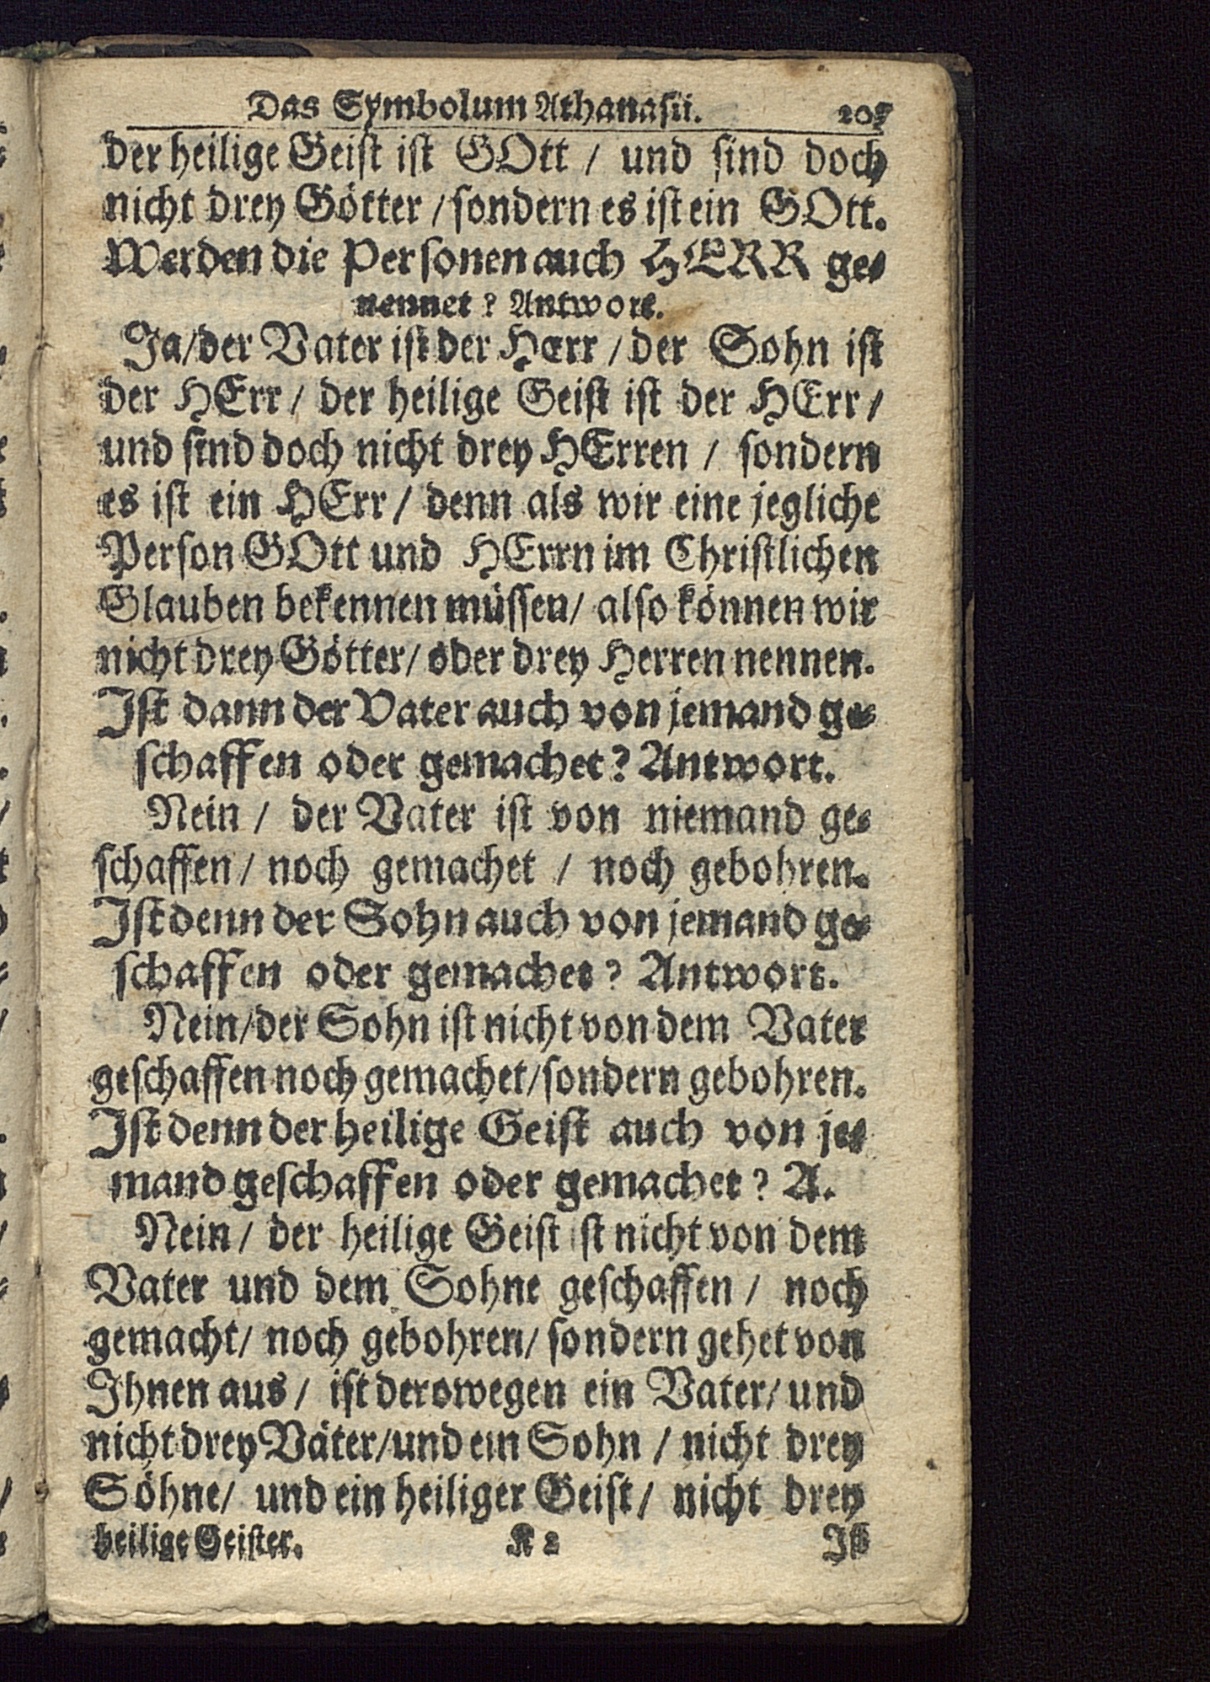 Das Symbolum Athanasii. 205
der heilige Geist ist GOtt / und sind doch
nicht drey Götter / sondern es ist ein GOtt.
Werden die Personen auch HERR ge-
nennet? Antwort.
Ja/der Vater ist der Herr / der Sohn ist
der HErr / der heilige Geist ist der HErr /
und sind doch nicht drey HErren / sondern
es ist ein HErr / denn als wir eine jegliche
Person GOtt und HErrn im Christlichen
Glauben bekennen müssen/ also können wir
nicht drey Götter/ oder drey Herren nennen.
Ist dann der Vater auch von jemand ge-
schaffen oder gemachet? Antwort.
Nein / der Vater ist von niemand ge-
schaffen / noch gemachet / noch gebohren.
Ist denn der Sohn auch von jemand ge-
schaffen oder gemachet? Antwort.
Nein/der Sohn ist nicht von dem Vater
geschaffen noch gemachet/sondern gebohren.
Ist denn der heilige Geist auch von je-
mand geschaffen oder gemachet? A.
Nein / der heilige Geist ist nicht von dem
Vater und dem Sohne geschaffen / noch
gemacht/ noch gebohren/ sondern gehet von
Ihnen aus / ist derowegen ein Vater/ und
nicht drey Väter/und ein Sohn / nicht drey
Söhne/ und ein heiliger Geist / nicht drey
heilige Geister. K 2 Ist